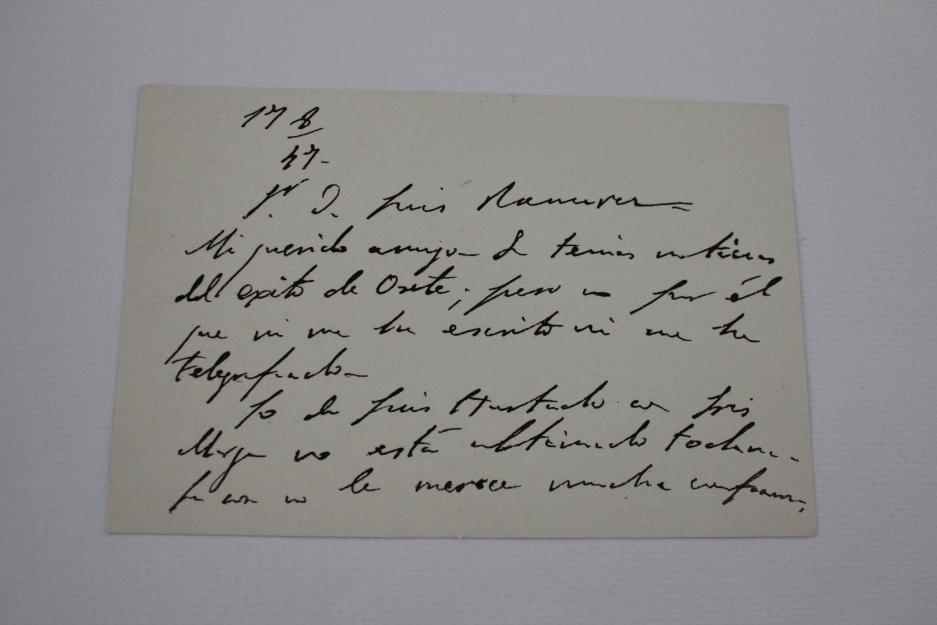 17 8
47-
Sr. D. Luis Ramírez=
Mi querido amigo- Sí tenía noticias
del éxito de Osete; pero no por él
que ni me ha escrito ni me ha
telegrafiado-
Lo de Luis Hurtado con
no está ultimado
no le merece mucha confianza,